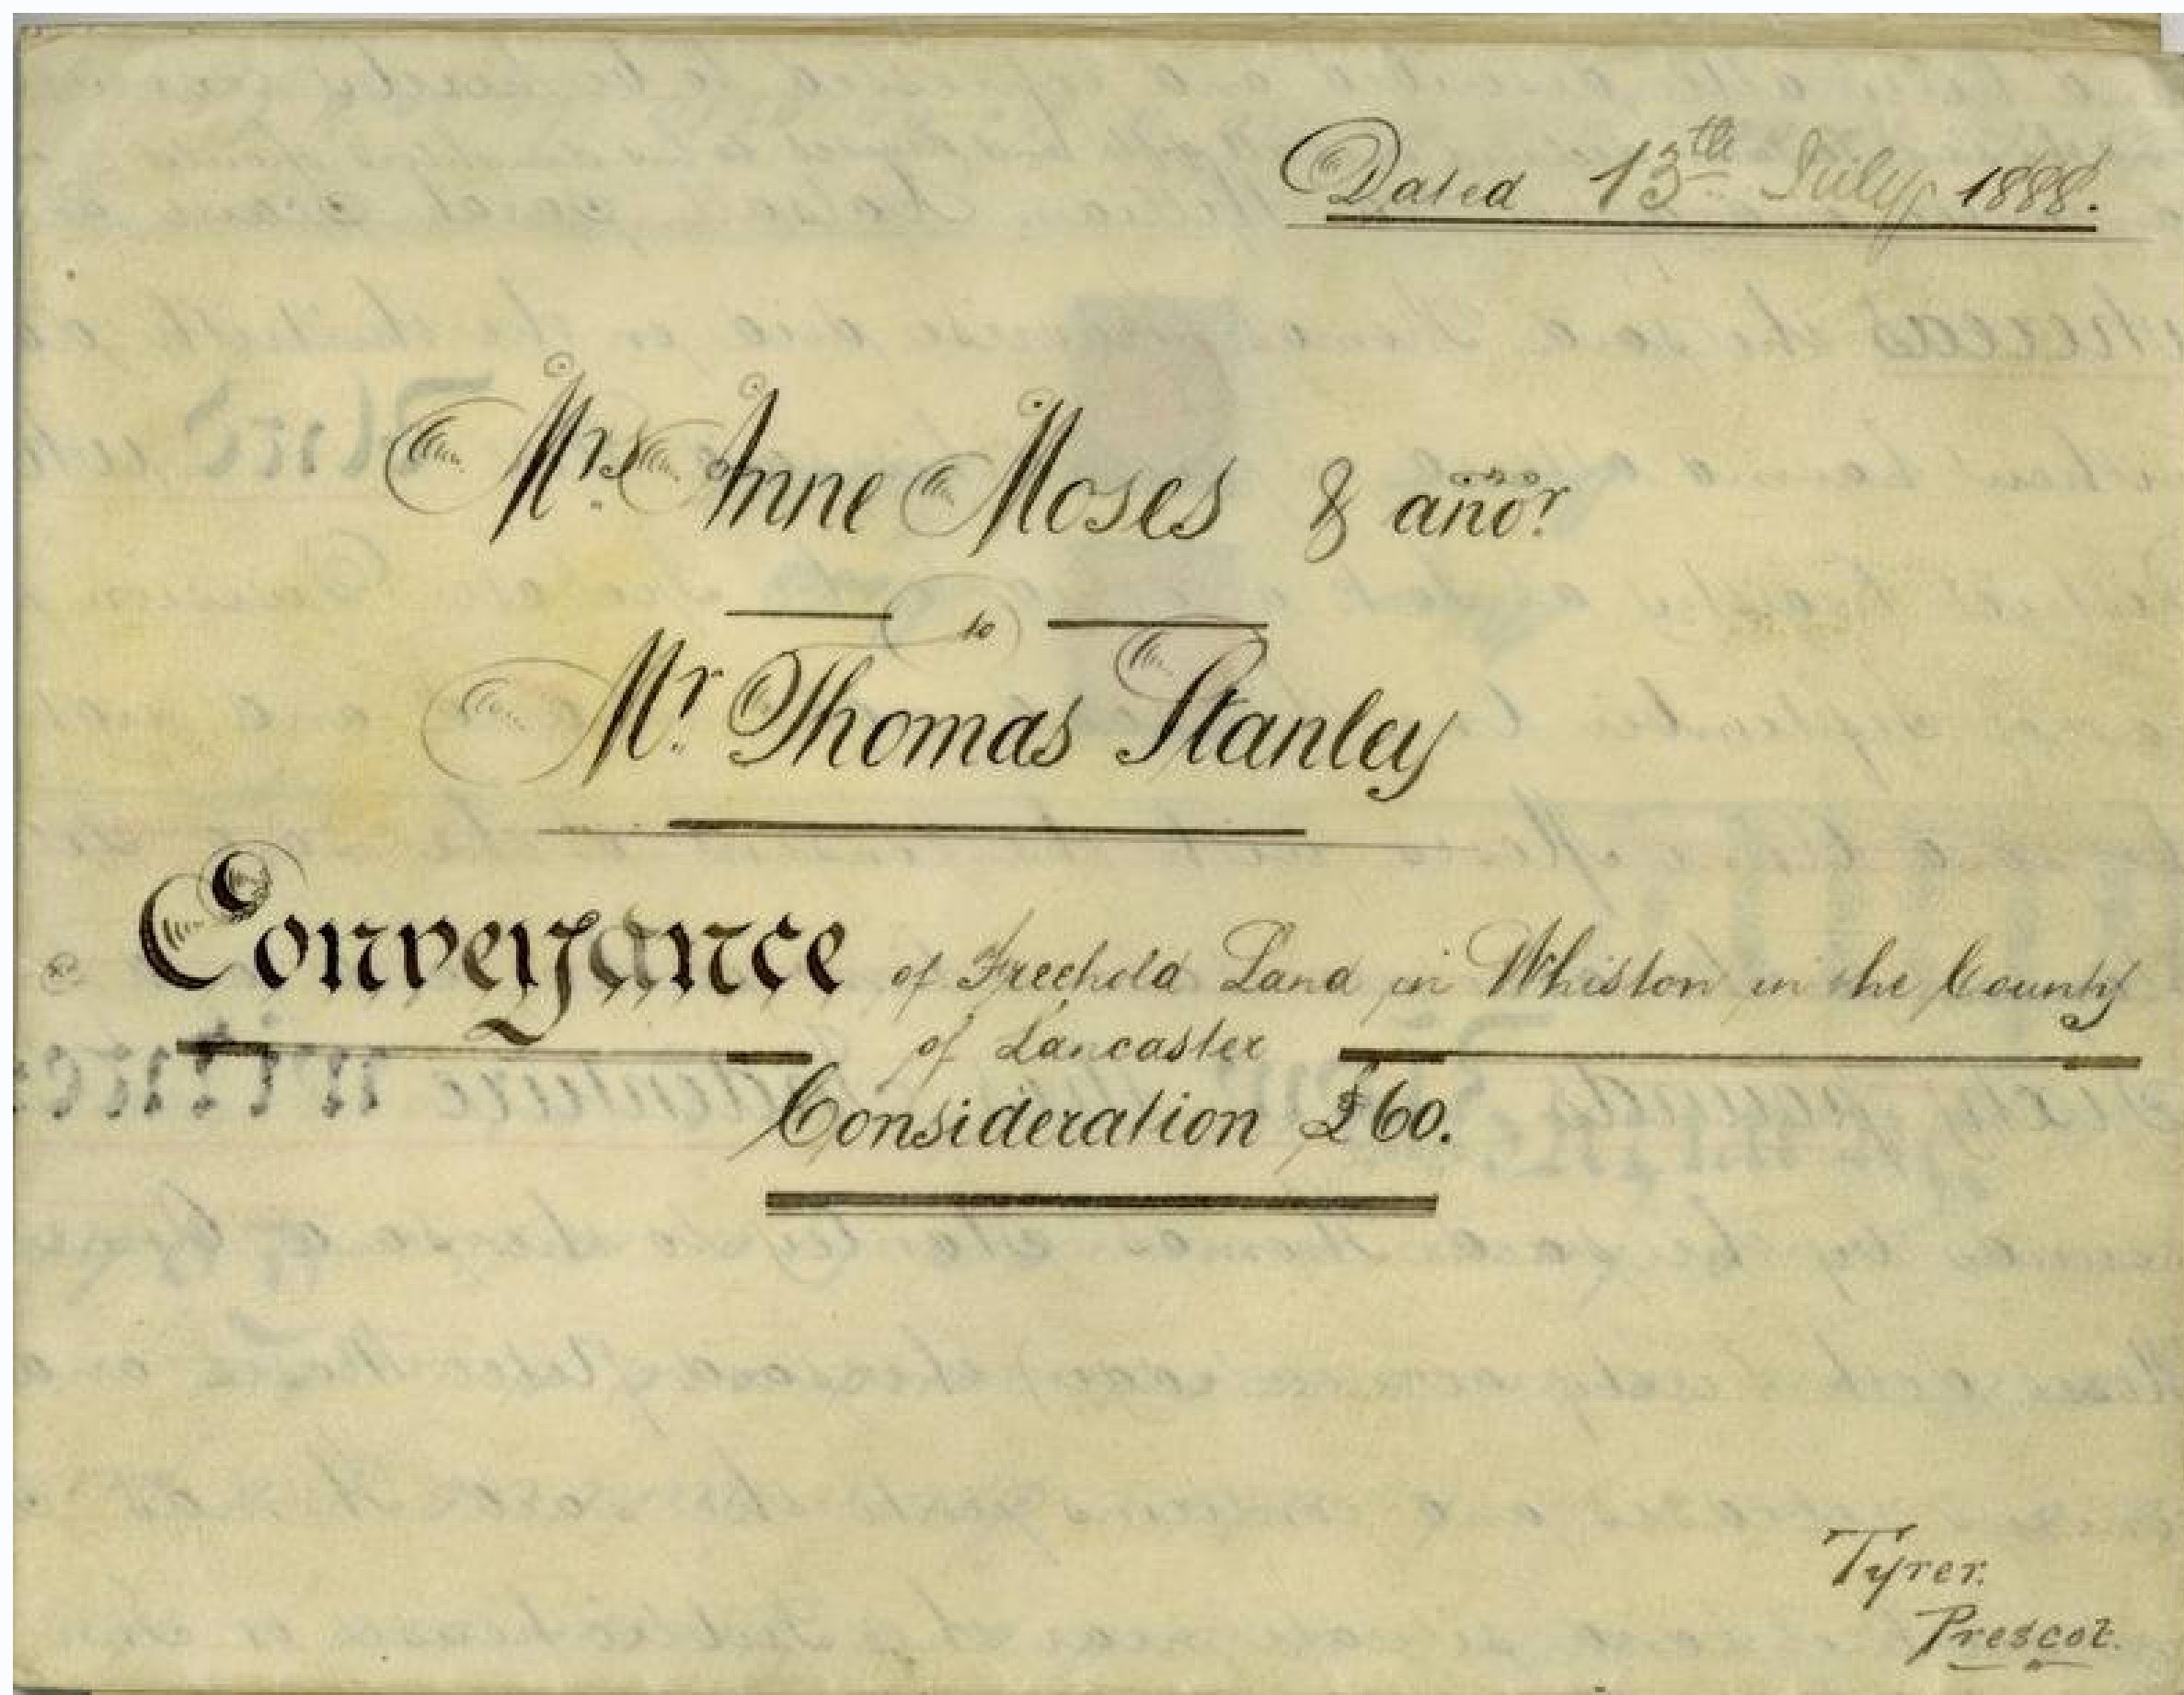 Dated 13th July 1888.
Mrs. Anne Moses & anor.
to
Mr. Thomas Stanley
Conveyance of Freehold Land in Whiston in the County
of Lancaster
Consideration £60.
Tyrer.
Prescot.